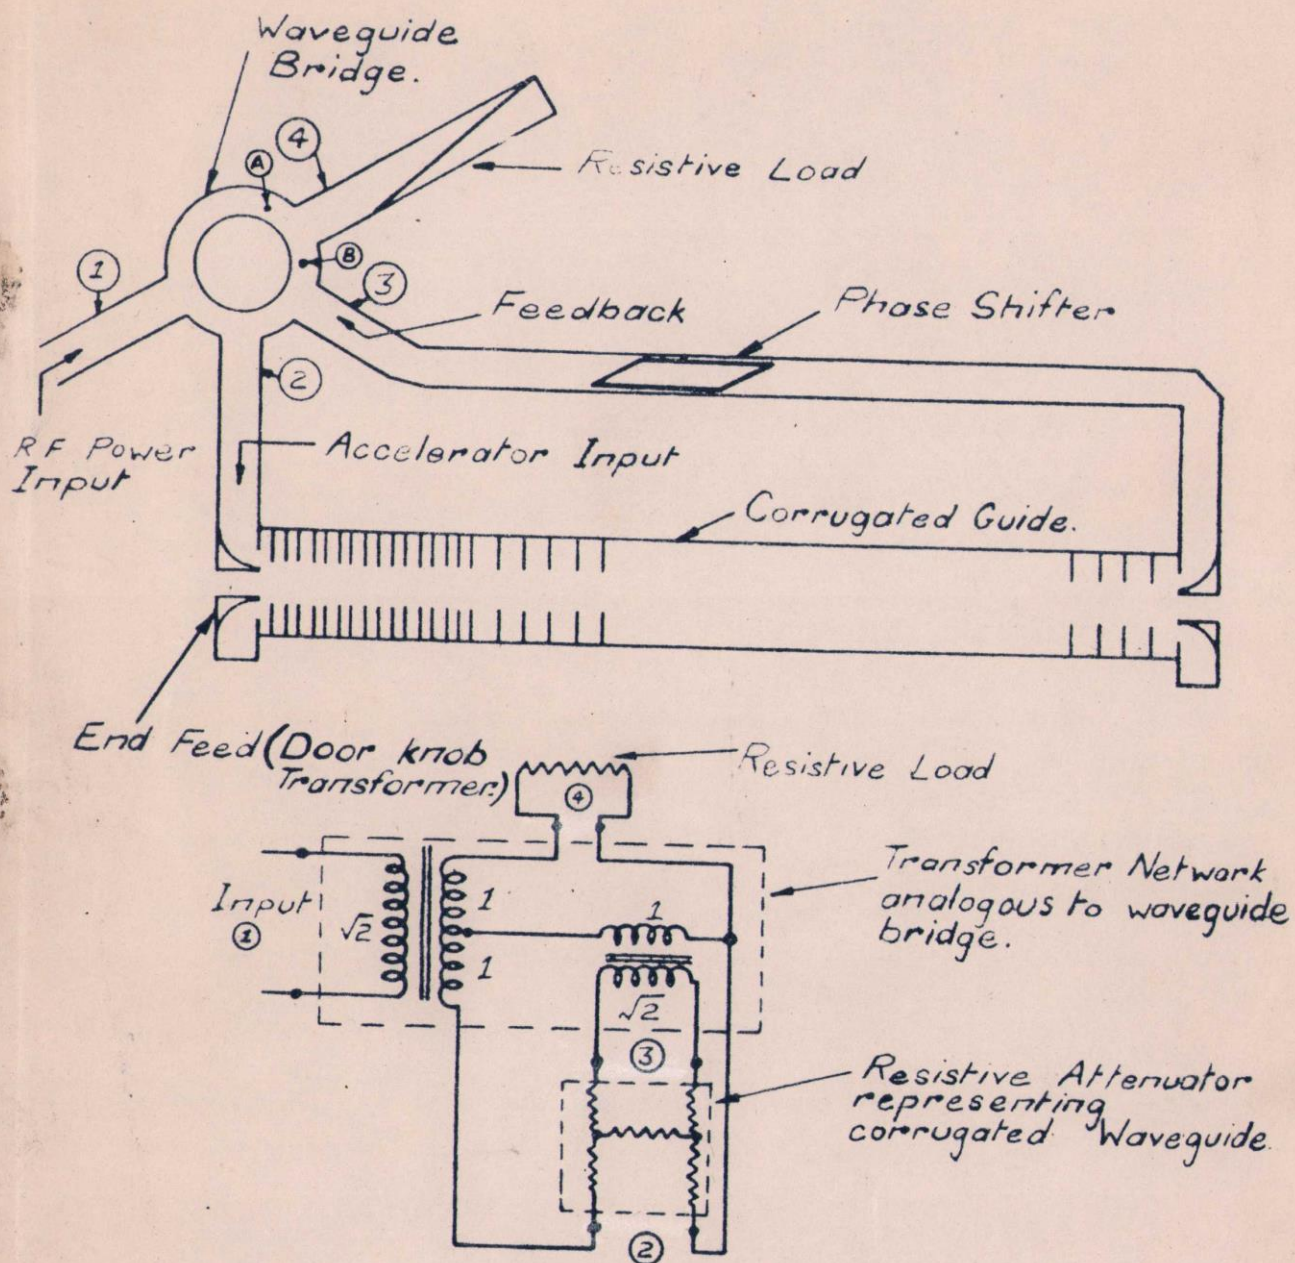 Waveguide
Bridge.
4
A
Resistive Load
1
B
3
Feedback
Phase Shifter
2
RF Power
Input
Accelerator Input
Corrugated Guide.
End Feed (Door knob
Transformer.)
Resistive Load
4
Input
1
√2
1
1
1
√2
3
Transformer Network
analogous to waveguide
bridge.
Resistive Attenuator
representing
corrugated Waveguide.
2